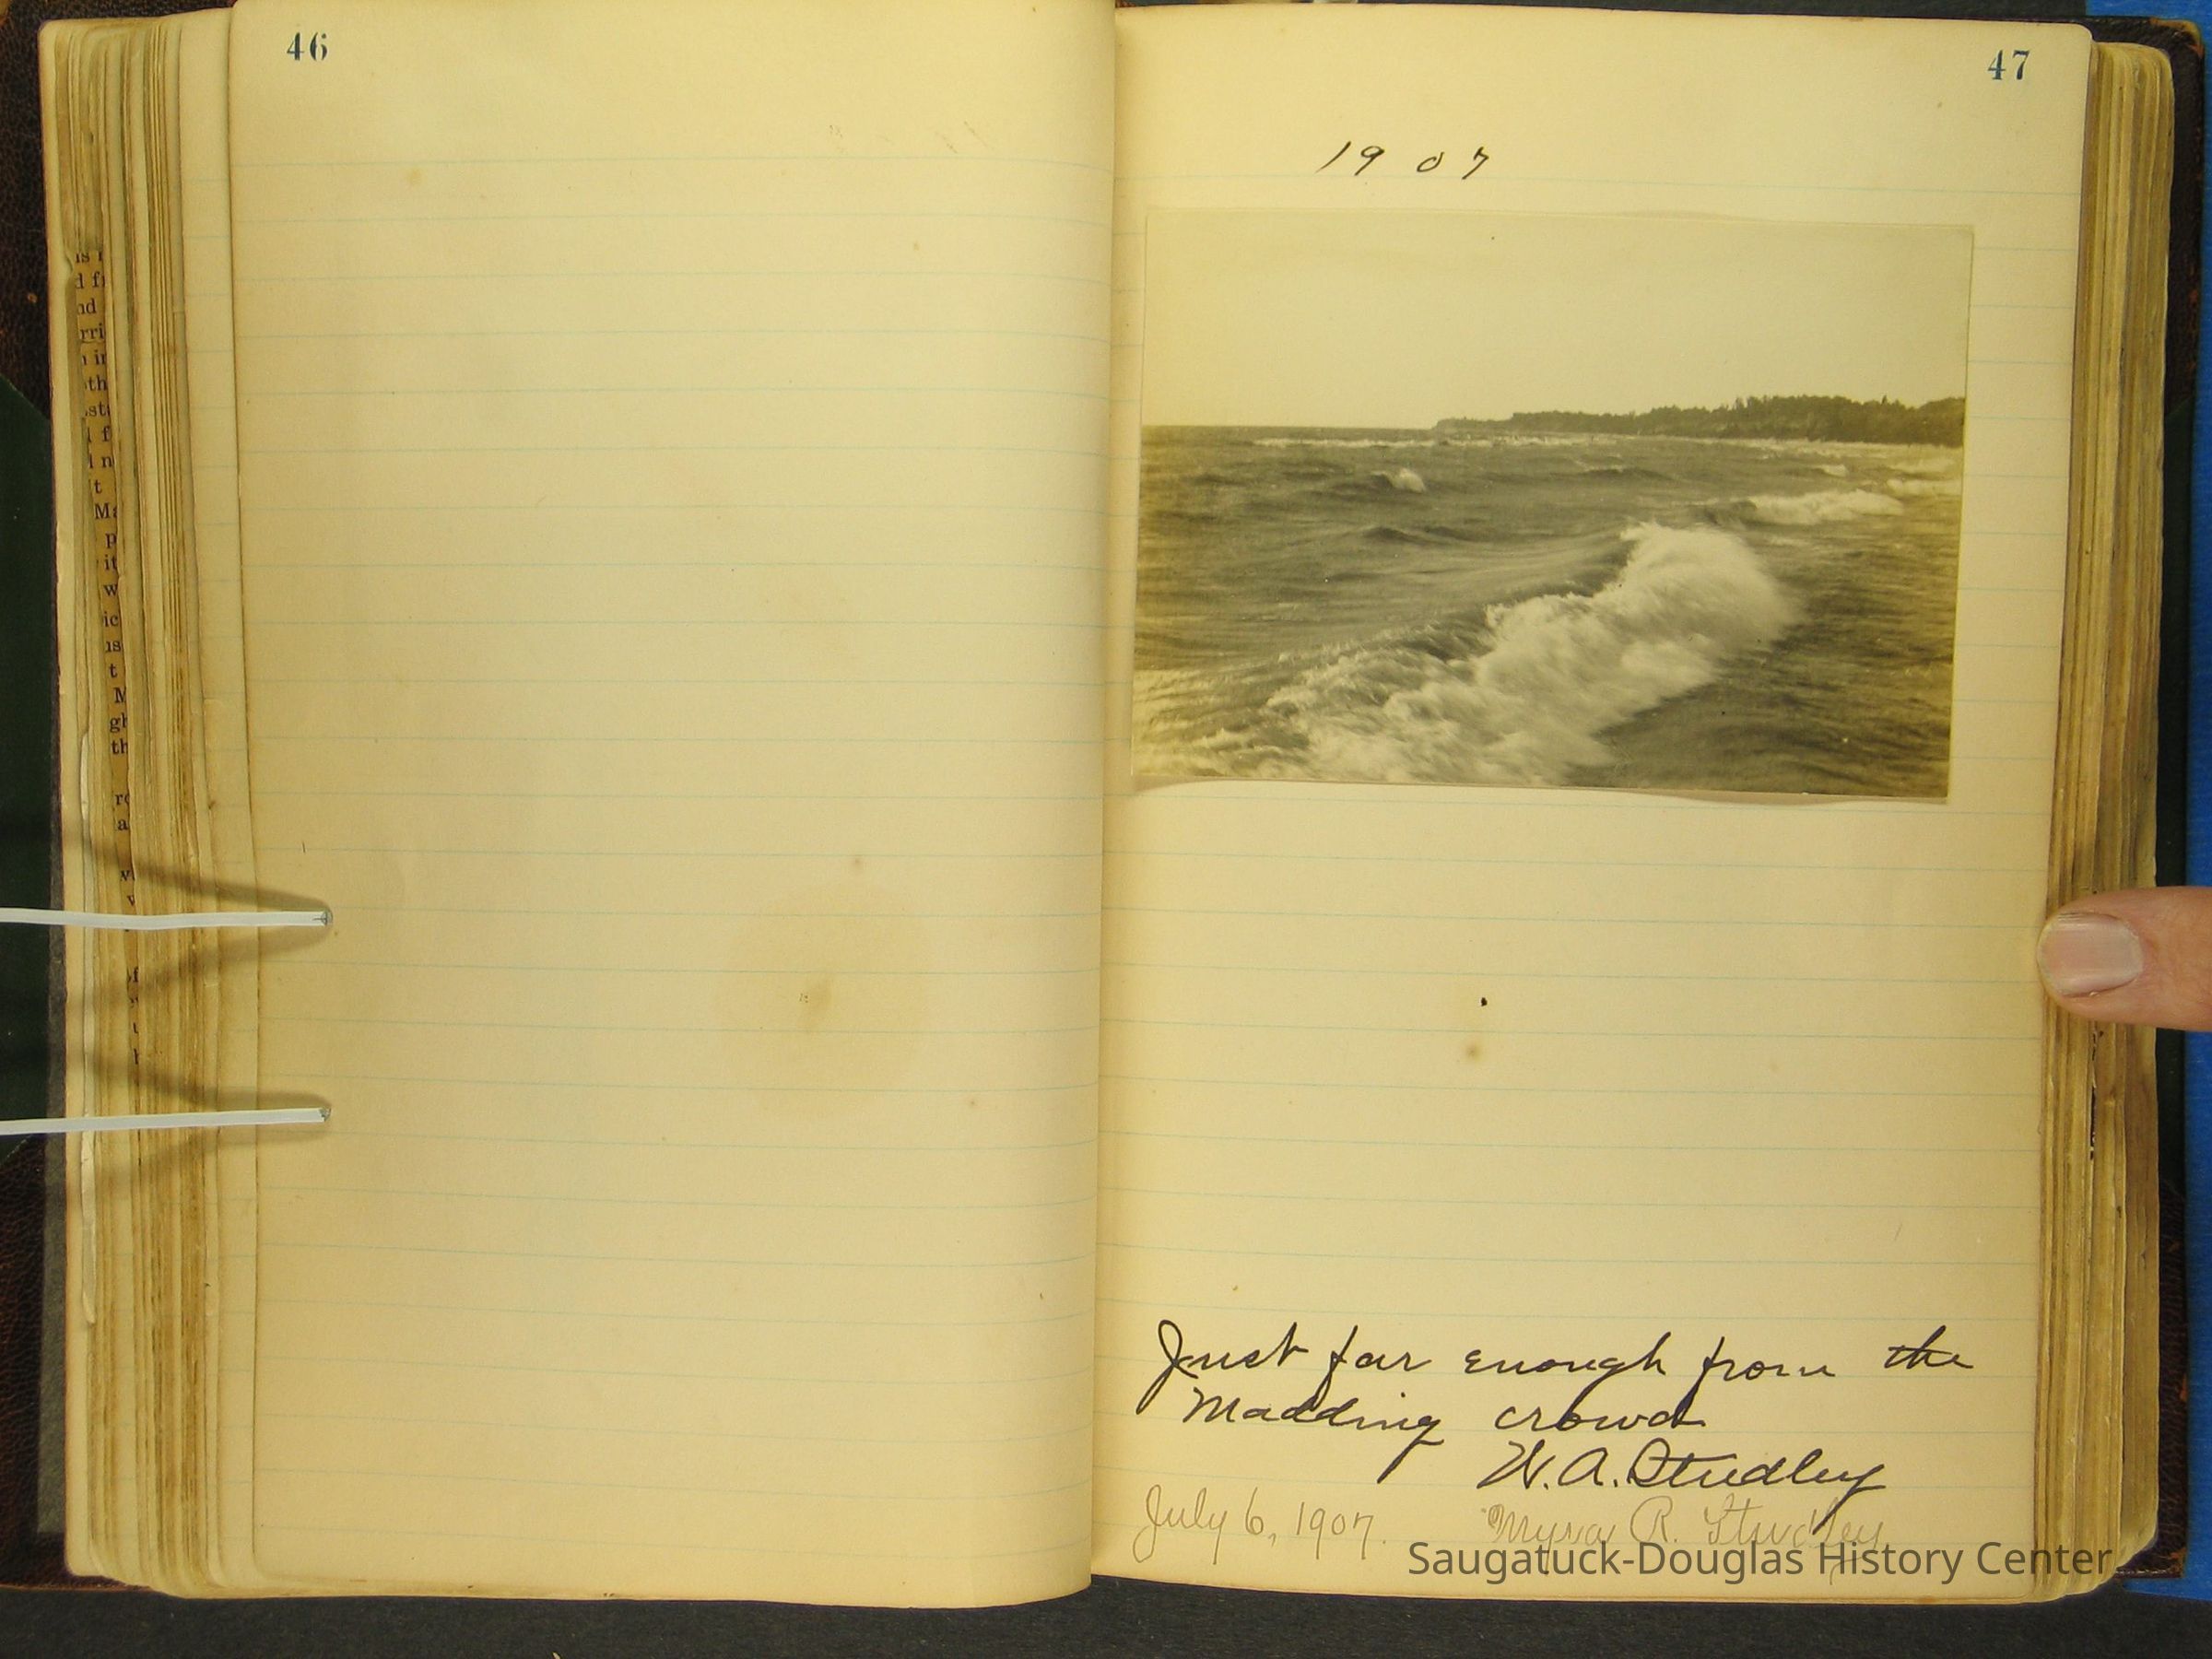 46
47
1907
Just far enough from the
Madding crowd
W. A. Studley
July 6, 1907. Myra R. Studley
Saugatuck-Douglas History Center